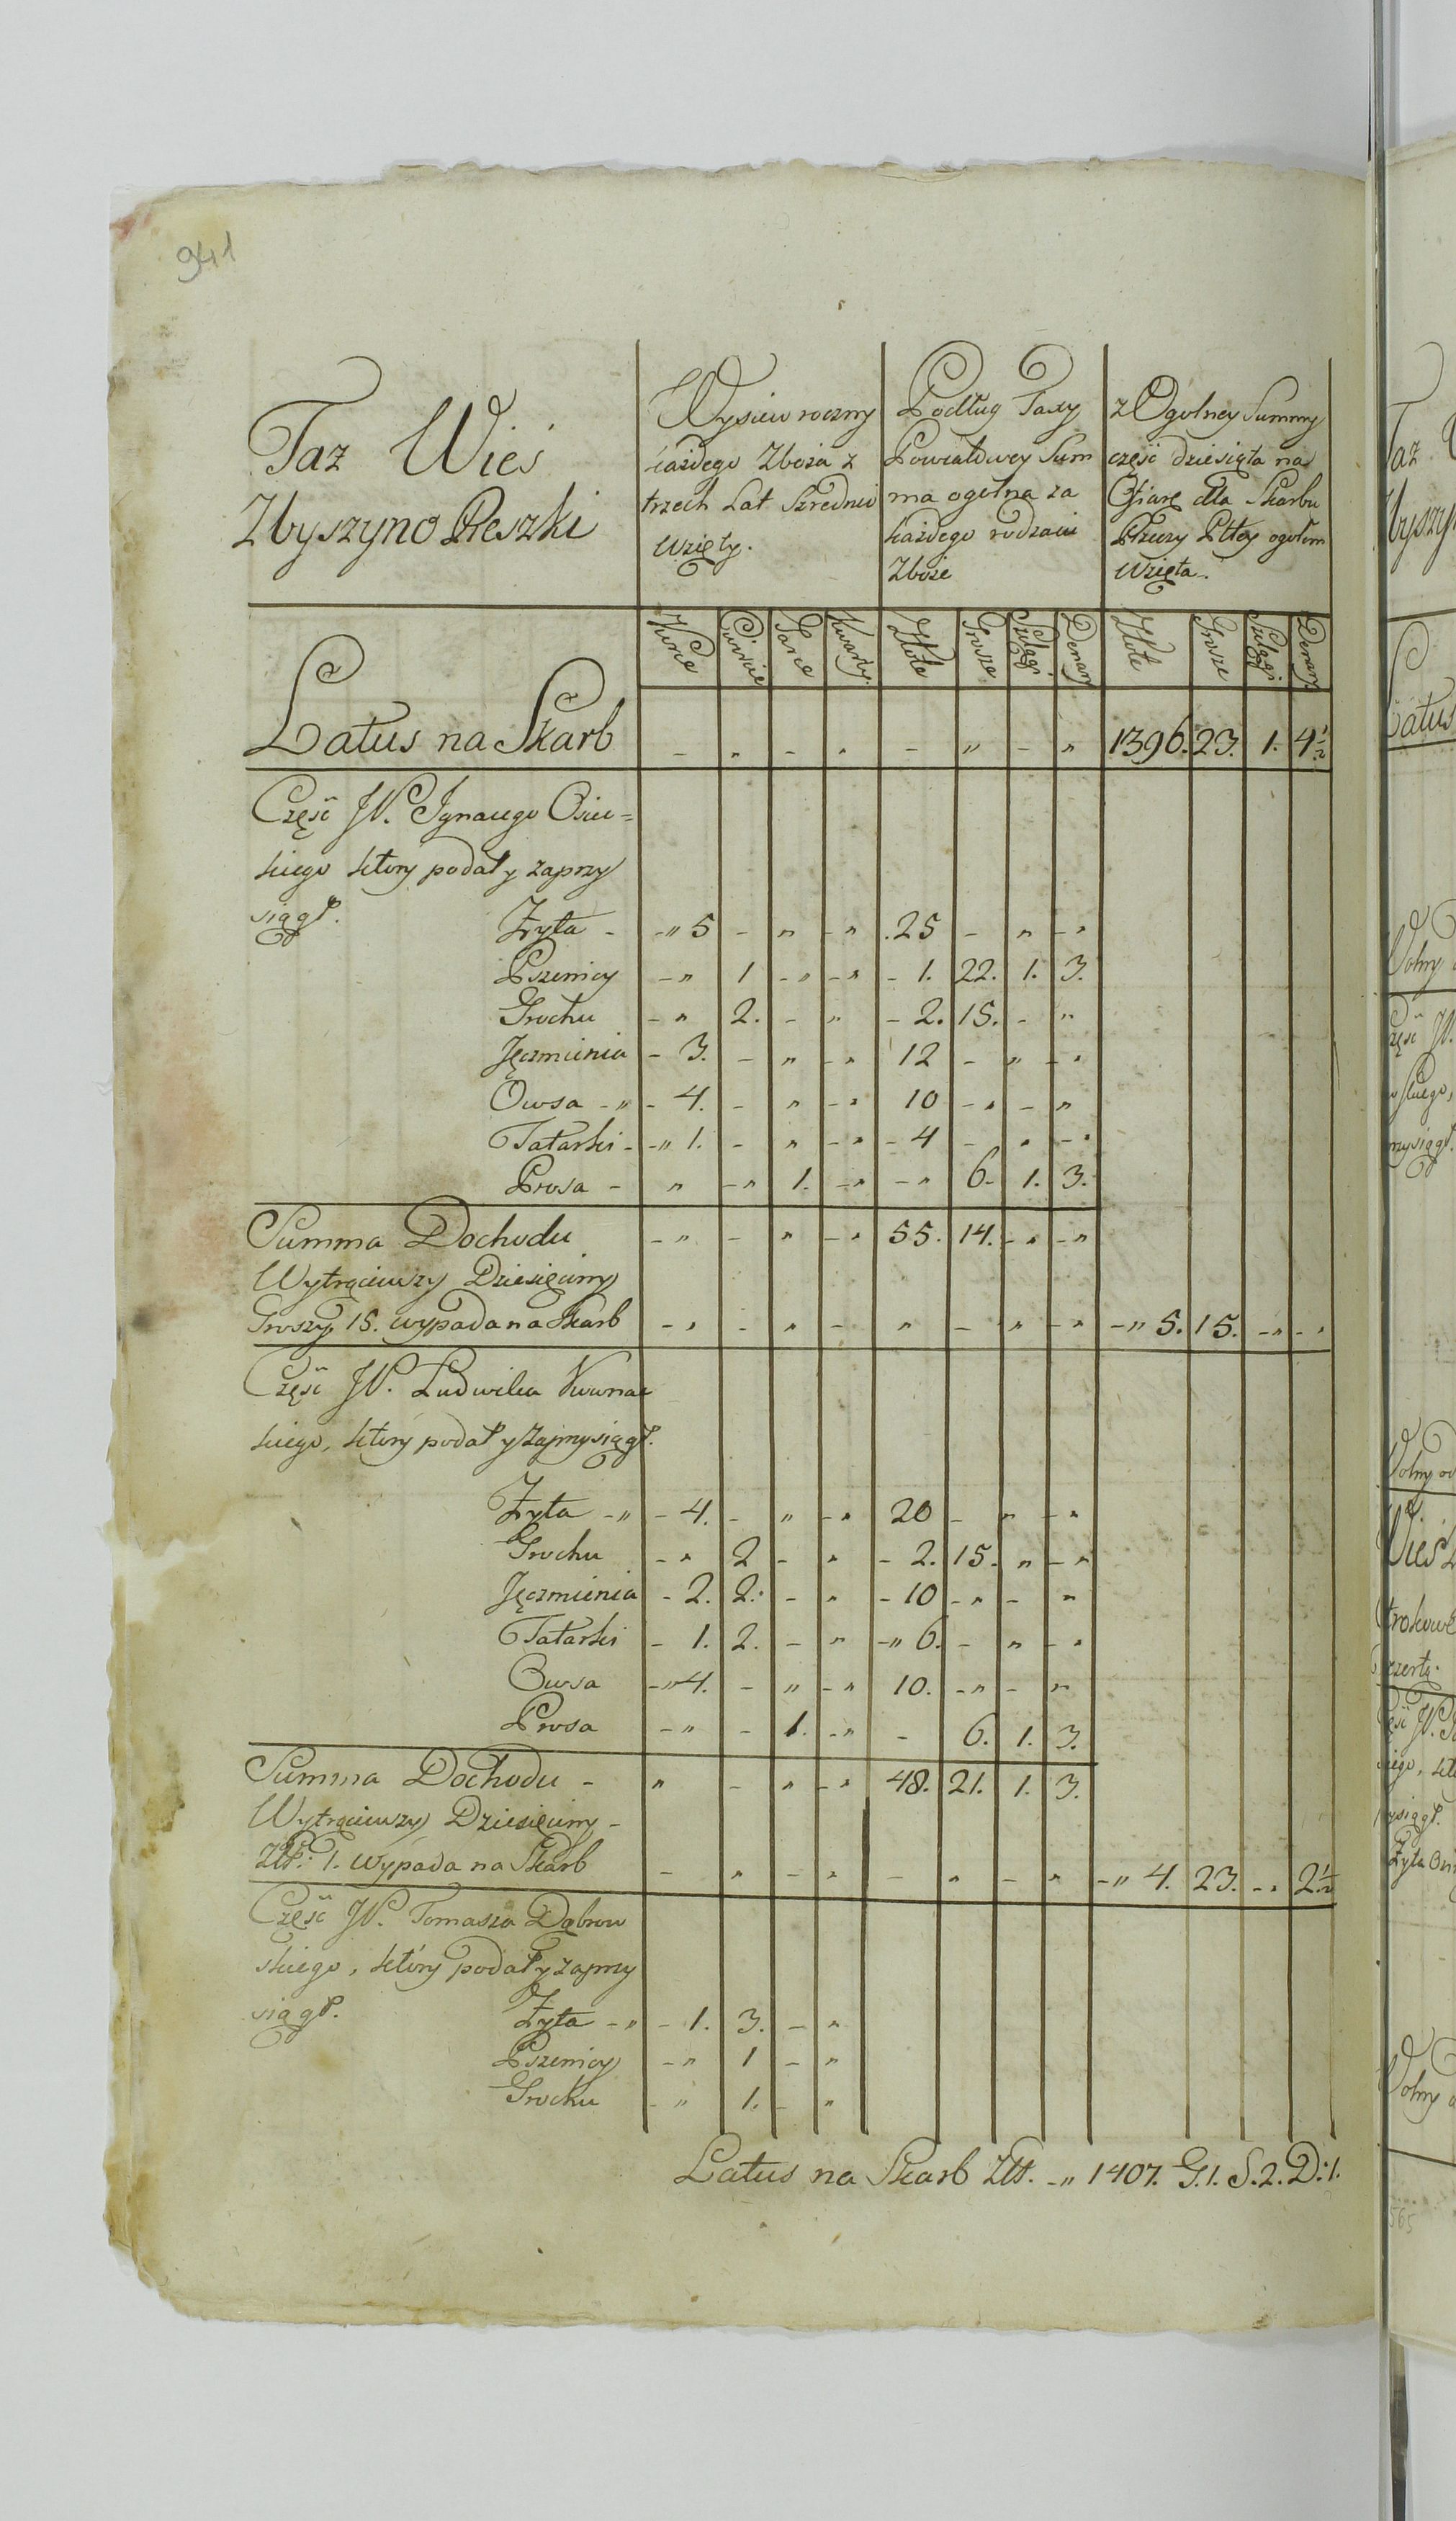 941
Taz Wieś
Zbyszyno Peszki
Wysiew roczny
każdego Zboża z
trzech Lat Srednio
wzięty.
Podług Taxy
Powiatowey Sum
ma ogolna za
każdego rodzaiu
Zboże
z Ogolney Summy
część dziesiąta na
Ofiarę dla Skarbu
Rzeczy Pltey ogołem
wzięta.
Korce Cwierćie Garce Kwarty. Złote Grosze Szelągi Denary Złote Grosze Szelągi Denary
Latus na Skarb - „ - „ - „ - „ 1396. 23. 1. 4½
Część JP. Ignacego Osiec=
kiego który podał y zaprzy
siągł.
Zyta - -„ 5 - „ -„ 25 - „ -„
Pszenicy -„ 1 -„ -„ - 1. 22. 1. 3.
Grochu -„ 2. - „ - 2. 15. - „
Jęczmienia - 3. - „ -„ 12 - „ -„
Owsa -„ - 4. - „ -„ 10 -„ - „
Tatarki - -„ 1. - „ -„ - 4 - „ -„
Prosa - „ -„ 1. -„ -„ 6. 1. 3.
Summa Dochodu -„ - „ -„ 55. 14. -„ -„
Wytrąciwszy Dziesięciny
Groszy 15. wypada na Skarb -„ - „ - „ - „ -„ -„ 5. 15. -„ -„
Część JP. Ludwika
kiego, który podał y zaprzysiągł.
Zyta -„ - 4. - „ -„ 20 - „ -„
Grochu -„ 2 - „ - 2. 15. „ -„
Jęczmienia - 2. 2. - „ - 10 -„ - „
Tatarki - 1. 2. - „ -„ 6. - „ -„
Owsa -„ 4. - „ -„ 10. -„ - „
Prosa -„ - 1. -„ - 6. 1. 3.
Summa Dochodu - „ - „ -„ 48. 21. 1. 3.
Wytrąciwszy Dziesięciny -
Złt: 1. wypada na Skarb - „ - „ - „ - „ -„ 4. 23. -„ 2½
Część JP. Tomasza Dąbrow
skiego, który podał y zaprzy
siągł. Zyta -„ - 1. 3. - „
Pszenicy -„ 1 - „
Grochu -„ 1. - „
Latus na Skarb Złt. -„ 1407. G. 1. S. 2. D: 1.